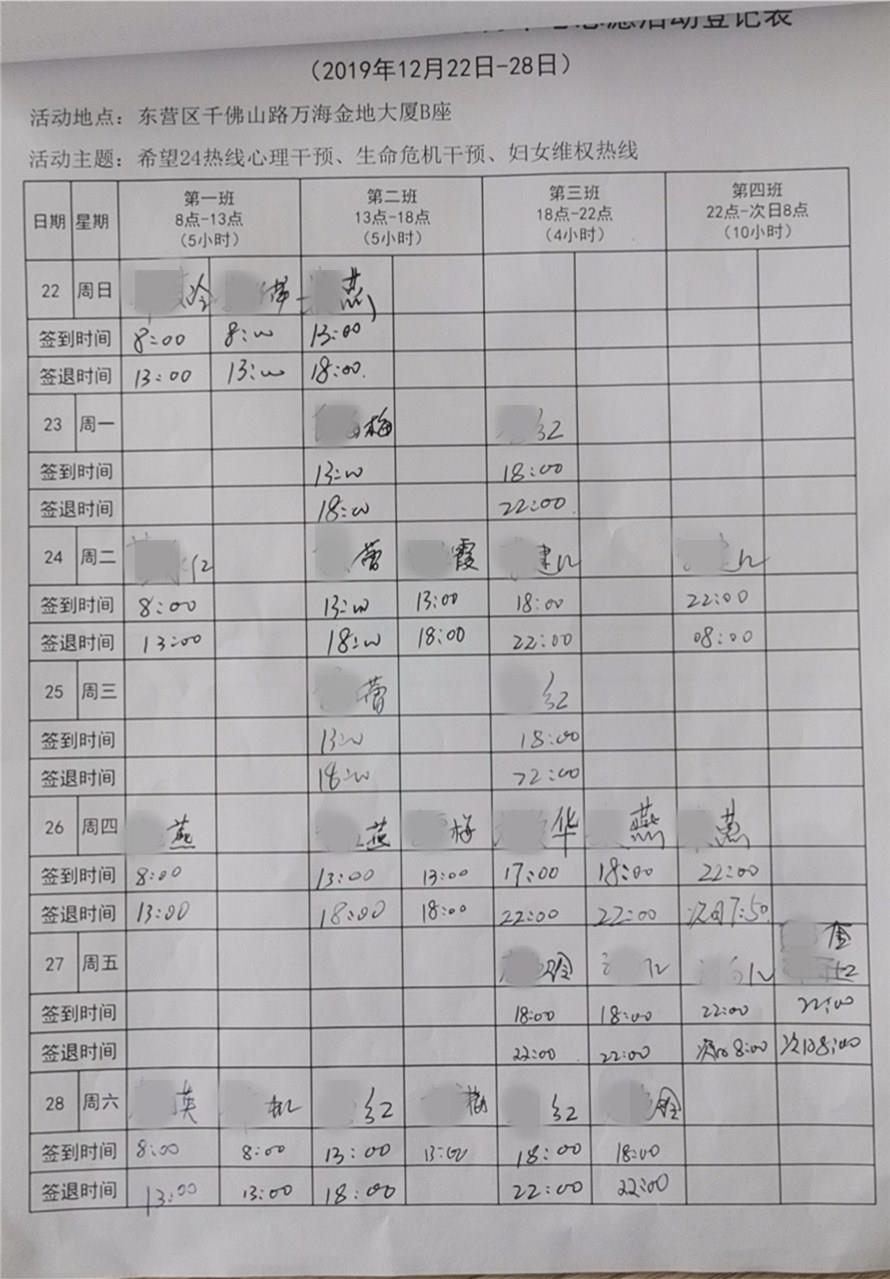 活动登记表
（2019年12月22日-28日）
活动地点：东营区千佛山路万海金地大厦B座
活动主题：希望24热线心理干预、生命危机干预、妇女维权热线
日期 星期 第一班 8点-13点 （5小时） 第二班 13点-18点 （5小时） 第三班 18点-22点 （4小时） 第四班 22点-次日8点 （10小时）
22 周日 燕
签到时间 8:00 8:00 13:00
签退时间 13:00 13:00 18:00.
23 周一 梅 红
签到时间 13:00 18:00
签退时间 18:00 22:00
24 周二 红 蕾 霞 建红 建红
签到时间 8:00 13:00 13:00 18:00 22:00
签退时间 13:00 18:00 18:00 22:00 08:00
25 周三 蕾 红
签到时间 13:00 18:00
签退时间 18:00 22:00
26 周四 燕 燕 梅 华 燕 惠
签到时间 8:00 13:00 13:00 17:00 18:00 22:00
签退时间 13:00 18:00 18:00 22:00 22:00 次日7:50
27 周五 红 红 金 红
签到时间 18:00 18:00 22:00 22:00
签退时间 22:00 22:00 次日8:00 次日8:00
28 周六 英 红 红 梅 红
签到时间 8:00 8:00 13:00 13:00 18:00 18:00
签退时间 13:00 13:00 18:00 22:00 22:00